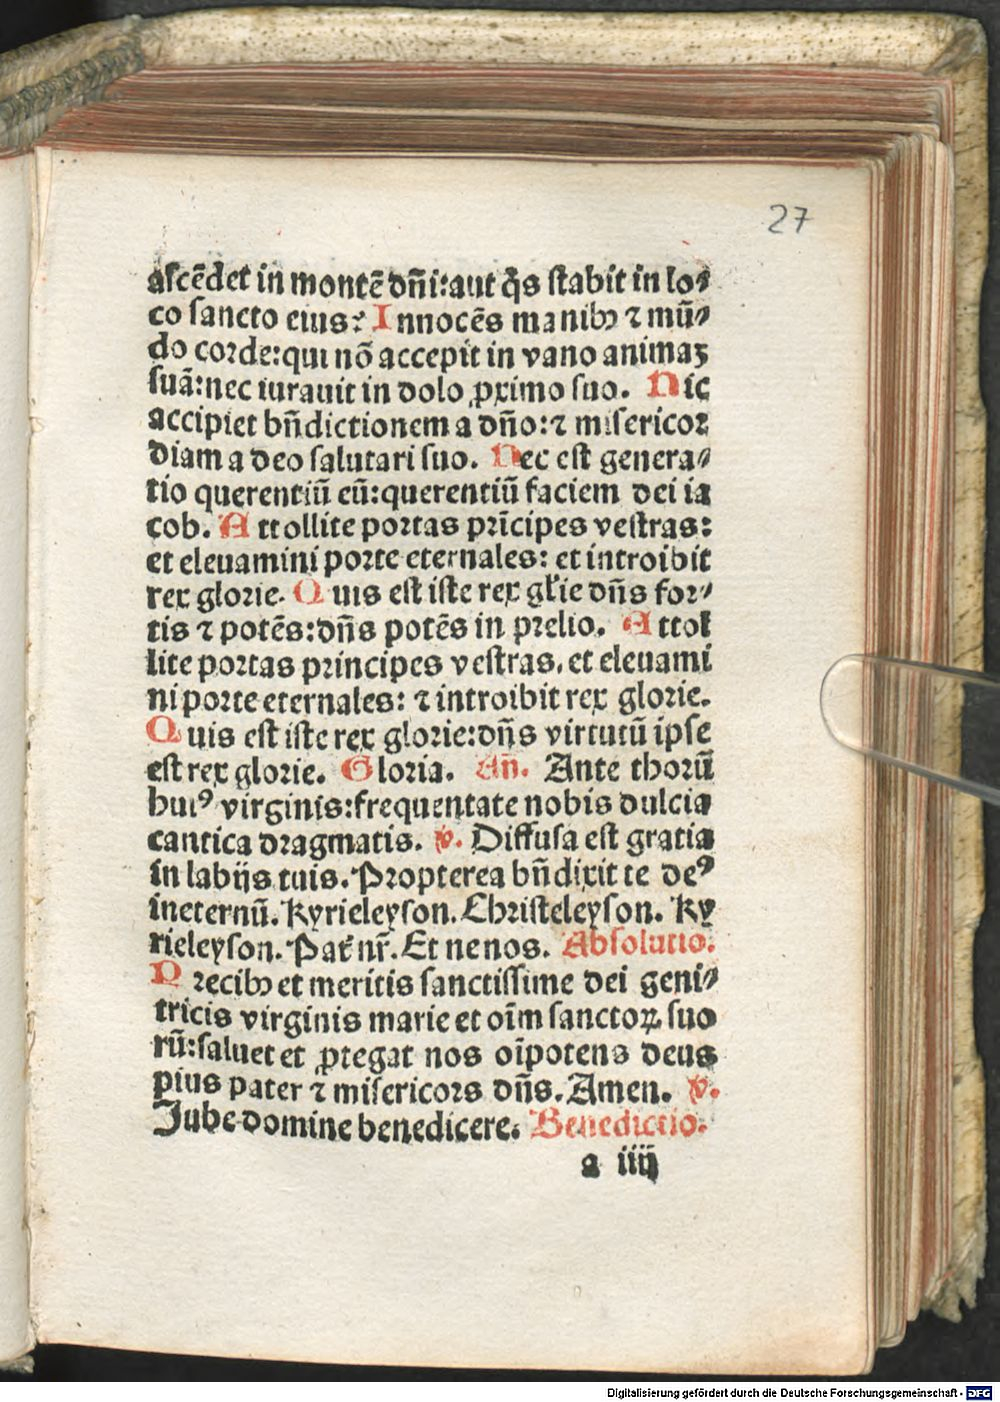 27
ascēdet in montē dn̄i:aut q̄s stabit in lo⸗
co sancto eius? Innocēs manibꝫ ⁊ mū⸗
do corde:qui nō accepit in vano animaꝫ
suā:nec iurauit in dolo ꝓximo suo. Hic
accipiet bn̄dictionem a dn̄o:⁊ misericor
diam a deo salutari suo. Hec est genera⸗
tio querentiū eū:querentiū faciem dei ia
cob. Attollite portas prīcipes vestras:
et eleuamini porte eternales: et introibit
rex glorie. Quis est iste rex gl'ie dn̄s for⸗
tis ⁊ potēs:dn̄s potēs in prelio. Attol
lite portas principes vestras. et eleuami
ni porte eternales: ⁊ introibit rex glorie.
Quis est iste rex glorie:dn̄s virtutū ipse
est rex glorie. Gloria. An̄. Ante thorū
huiꝰ virginis:frequentate nobis dulcia
cantica dragmatis. ℣. Diffusa est gratia
in labijs tuis. Propterea bn̄dixit te deꝰ
ineternū. Kyrieleyson. Christeleyson. Ky
rieleyson. Pat' nr̄. Et ne nos. Absolutio.
Precibꝫ et meritis sanctissime dei geni⸗
tricis virginis marie et oīm sanctoꝝ suo
rū:saluet et ꝓtegat nos oīpotens deus
pius pater ⁊ misericors dn̄s. Amen. ℣.
Jube domine benedicere. Benedictio.
a iiij
Digitalisierung gefördert durch die Deutsche Forschungsgemeinschaft - DFG